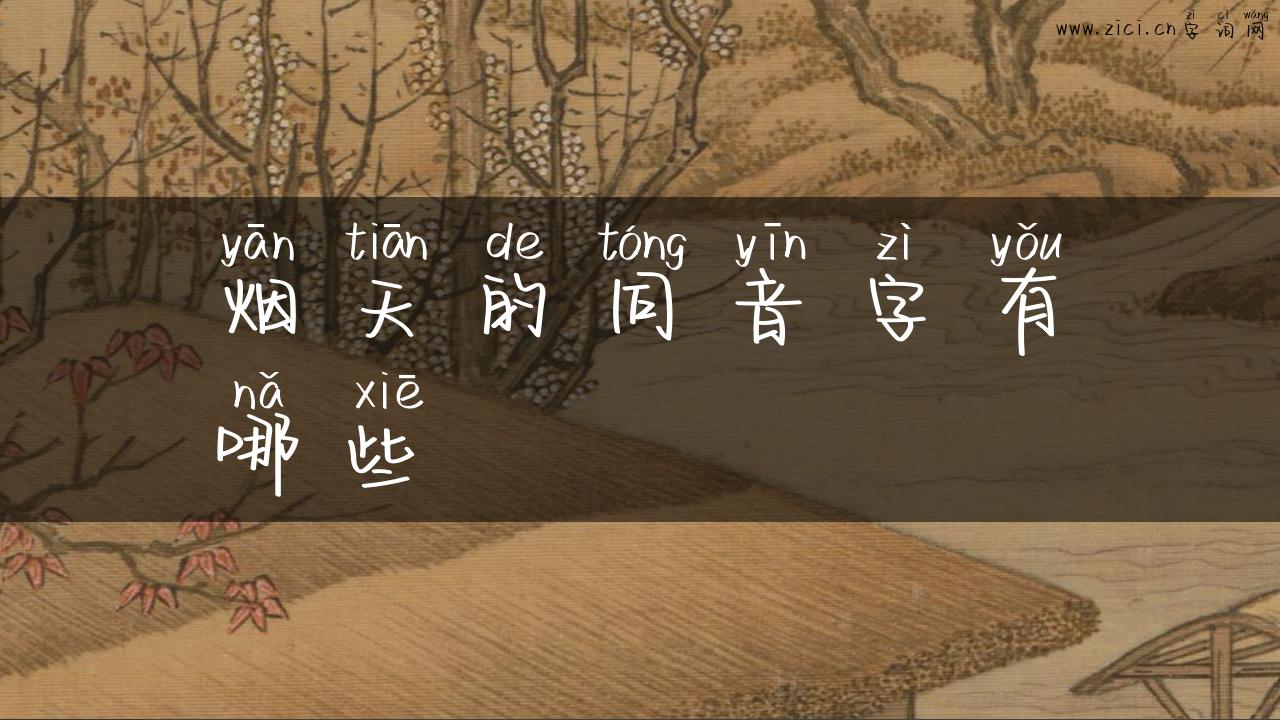 zì cí wǎng
www.zici.cn字词网
yān tiān de tóng yīn zì yǒu
烟天的同音字有
nǎ xiē
哪些